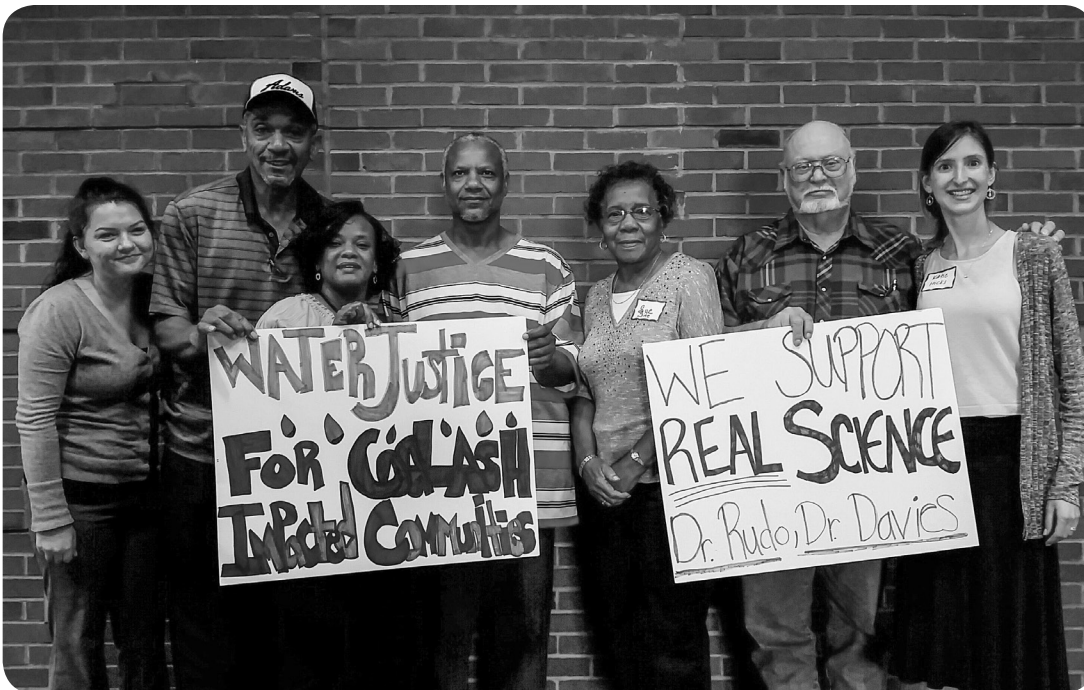 Adams
WATER JUSTICE
FOR COAL ASH
IMPACTED COMMUNITIES
WE SUPPORT
REAL SCIENCE
Dr. Rudo, Dr. Davies